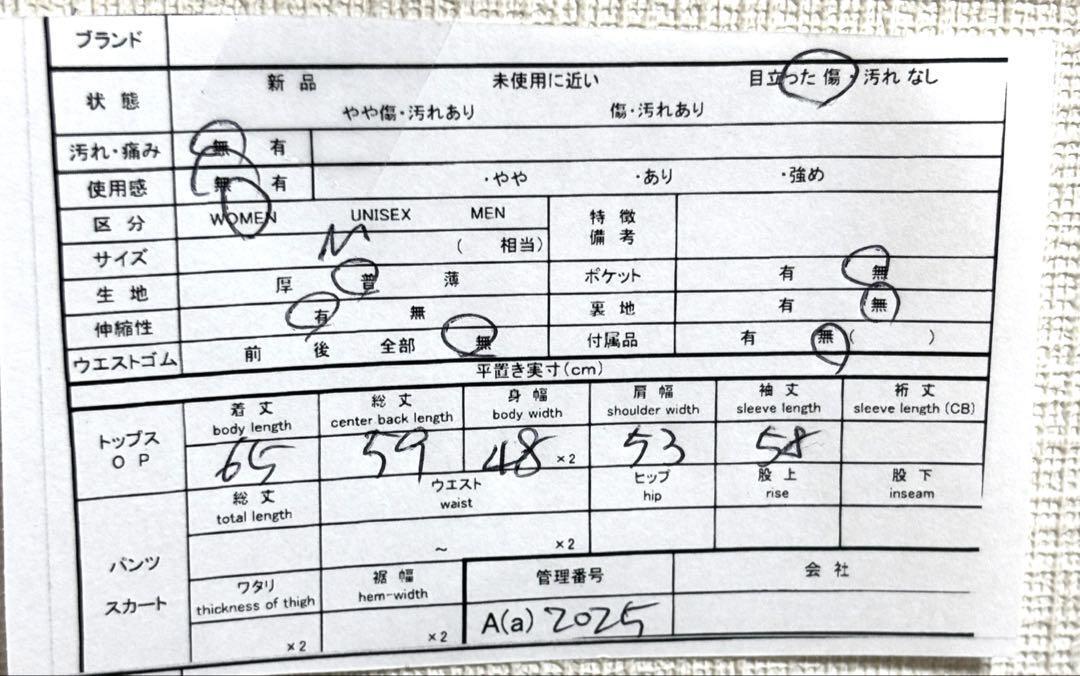 ブランド
状態 新品 未使用に近い 目立った傷・汚れなし
やや傷・汚れあり 傷・汚れあり
汚れ・痛み 無 有
使用感 無 有 ・やや ・あり ・強め
区分 WOMEN UNISEX MEN 特徴
備考
サイズ M ( 相当)
生地 厚 普 薄 ポケット 有 無
伸縮性 有 無 裏地 有 無
ウエストゴム 前 後 全部 無 付属品 有 無 ( )
平置き実寸(cm)
トップス
OP
着丈 総丈 身幅 肩幅 袖丈 裄丈
body length center back length body width shoulder width sleeve length sleeve length (CB)
65 59 48 ×2 53 58
パンツ
スカート
総丈 ウエスト ヒップ 股上 股下
total length waist hip rise inseam
~ ×2
ワタリ 裾幅 管理番号 会社
thickness of thigh hem-width
×2 ×2 A(a) 2025